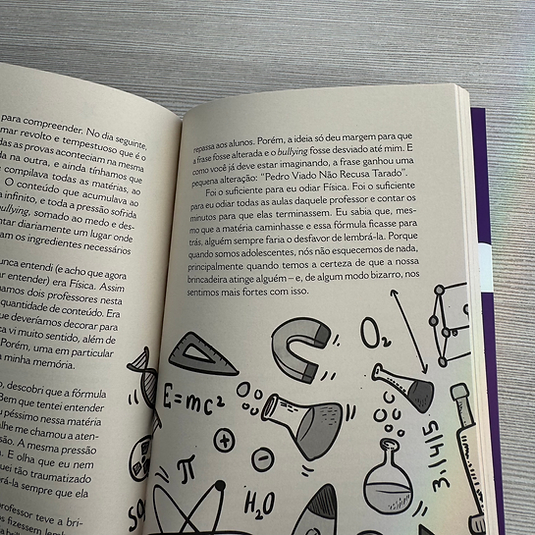 para compreender. No dia seguinte,
mar revolto e tempestuoso que é o
das as provas aconteciam na mesma
da na outra, e ainda tínhamos que
compilava todas as matérias, ao
O conteúdo que acumulava ao
infinito, e toda a pressão sofrida
bullying, somado ao medo e des-
ntar diariamente um lugar onde
am os ingredientes necessários
unca entendi (e acho que agora
ar entender) era Física. Assim
hamos dois professores nesta
quantidade de conteúdo. Era
que deveríamos decorar para
ca vi muito sentido, além de
Porém, uma em particular
minha memória.
o, descobri que a fórmula
Bem que tentei entender
u péssimo nessa matéria
alhe me chamou a aten-
são. A mesma pressão
. E olha que eu nem
uei tão traumatizado
brá-la sempre que ela
professor teve a bri-
os fizessem
repassa aos alunos. Porém, a ideia só deu margem para que
a frase fosse alterada e o bullying fosse desviado até mim. E
como você já deve estar imaginando, a frase ganhou uma
pequena alteração: “Pedro Viado Não Recusa Tarado”.
Foi o suficiente para eu odiar Física. Foi o suficiente
para eu odiar todas as aulas daquele professor e contar os
minutos para que elas terminassem. Eu sabia que, mes-
mo que a matéria caminhasse e essa fórmula ficasse para
trás, alguém sempre faria o desfavor de lembrá-la. Porque
quando somos adolescentes, nós não esquecemos de nada,
principalmente quando temos a certeza de que a nossa
brincadeira atinge alguém – e, de algum modo bizarro, nos
sentimos mais fortes com isso.
O₂
E=mc²
3,1415
π
H₂O